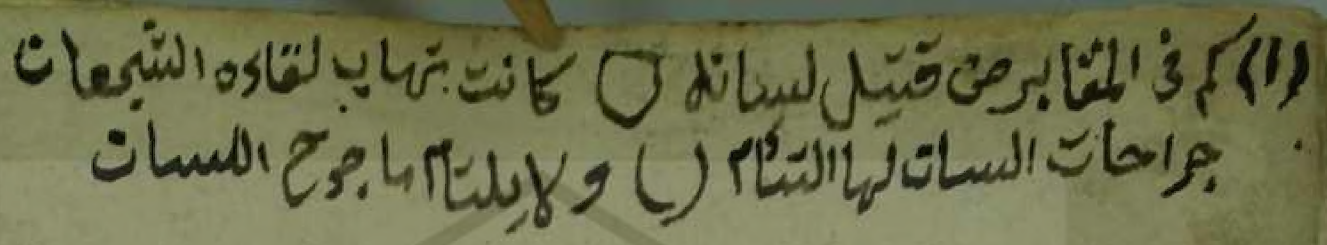 (١) كم فى المقابر من قتيل لسانه ں كانت تهاب لقاءه الشجعان
جراحات السنان لها التئام (ں) ولا يلتام ما جرح اللسان